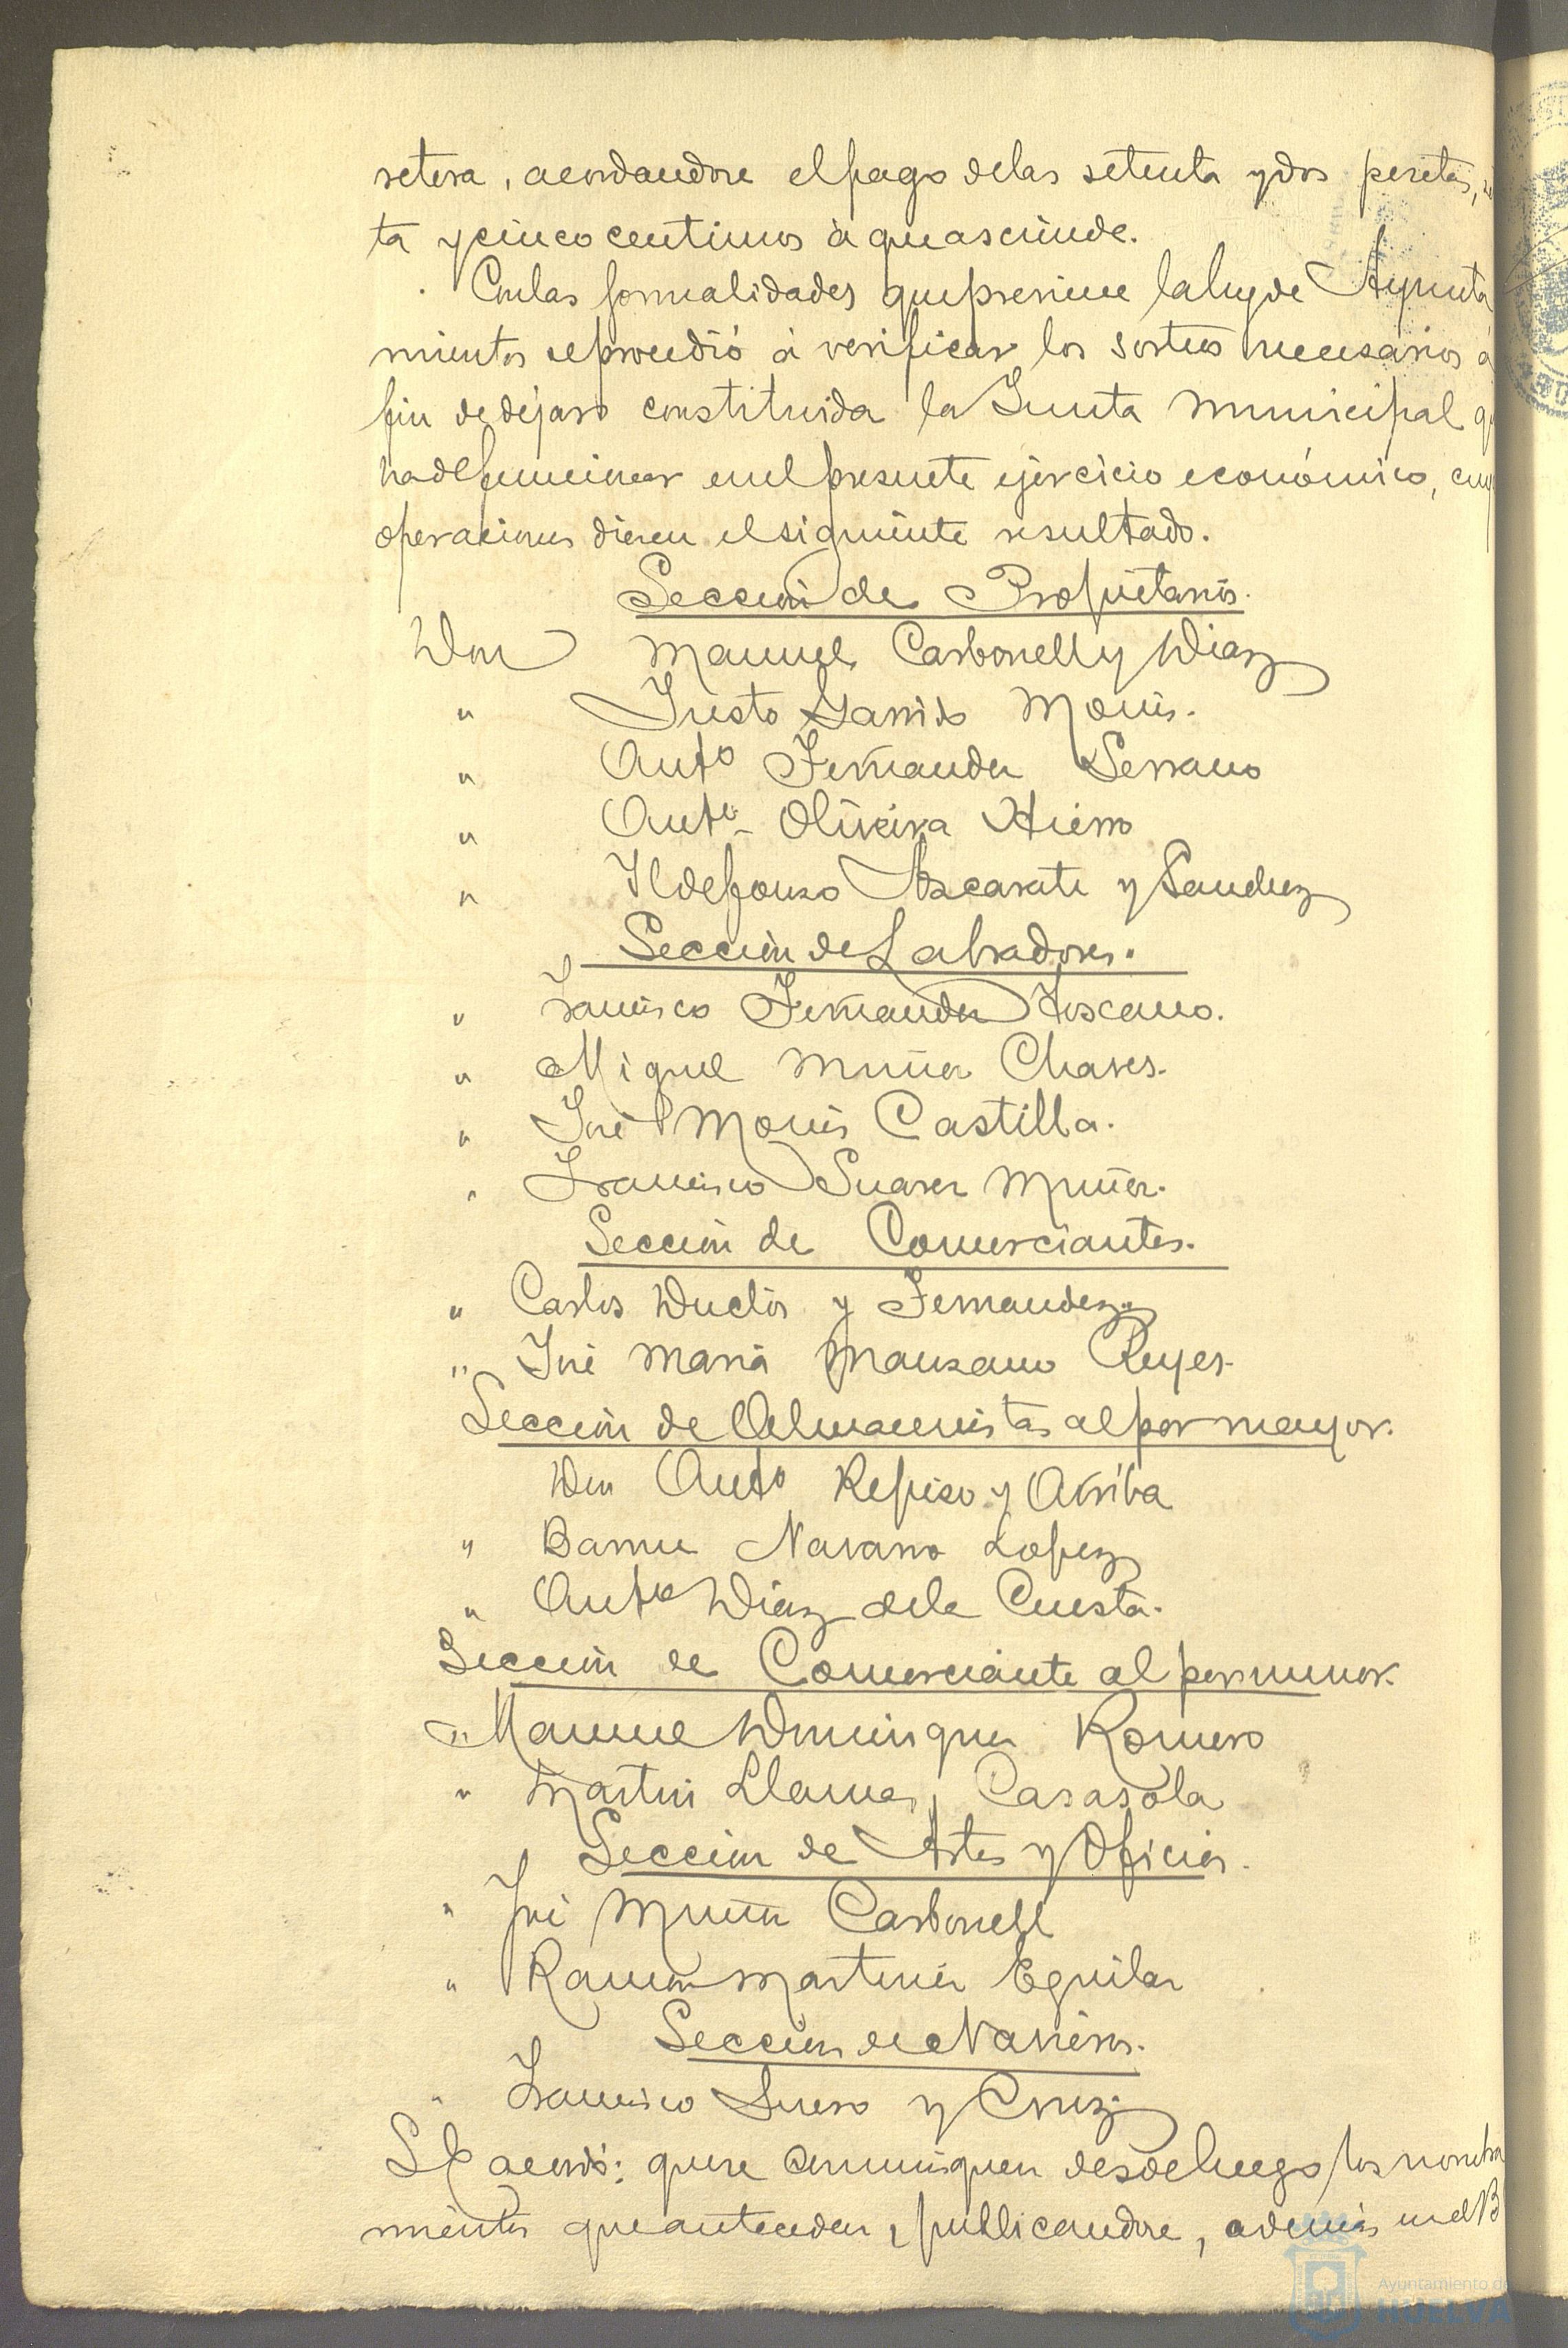 retera, acordandose el pago de las setenta y dos pesetas,
ta y cinco centimos à que asciende.
Con las formalidades que previene la ley de Ayunta
mientos se procedió à verificar los sorteos necesarios à
fin de dejar constituida la Junta Municipal q
ha de funcionar en el presente ejercicio económico, cuy
operaciones dieron el siguiente resultado.
Sección de Propietarios.
Don Manuel Carbonell y Diaz
" Justo Garrido Monis.
" Antº Fernandez Serrano
" Antº Oliveira Hierro
" Ildefonso Azcarate y Sanchez
Sección de Labradores.
" Francisco Fernandez Toscano.
" Miguel Muñoz Chaves.
" José Monis Castilla.
" Francisco Suarez Muñoz.
Sección de Comerciantes.
" Carlos Duclós y Fernandez
" José Maria Manzano Reyes.
Sección de Almacenistas al por mayor.
Don Antº Repiso y Arriba
" Navarro Lopez
" Antº Diaz de la Cuesta.
Sección de Comerciante al por menor.
" Manuel Dominguez Romero
" Martin Llamas, Casasola
Sección de Artes y Oficios.
" José Muñoz Carbonell
" Ramon Martinez Eguilar
Sección de Navieros.
" Francisco Suero y Cruz
Se acordó: que se comuniquen desde luego los nombra
mientos que anteceden, publicandose, además en el B
Ayuntamiento de
HUELVA